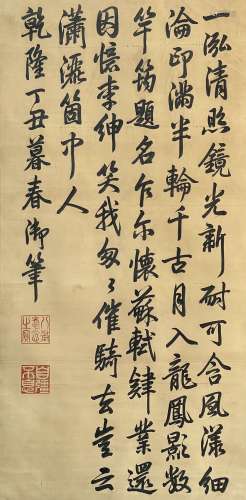 一泓清照鏡光新耐可含風漾細
淪印滿半輪千古月入龍鳳影數
竿筠題名乍尓懷蘇軾肄業還
因憶李紳笑我匆〻催騎去豈云
瀟灑箇中人
乾隆丁丑暮春御筆